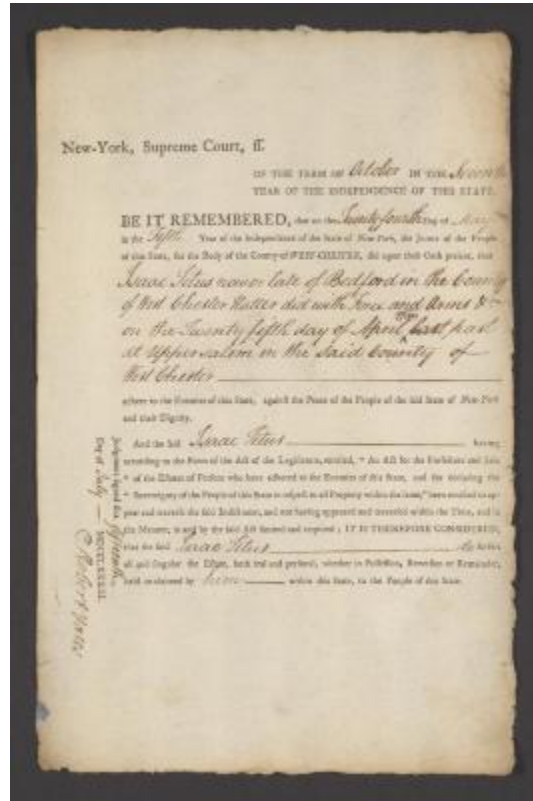 New-York, Supreme Court, ss.
OF THE TERM OF October IN THE Seventh
YEAR OF THE INDEPENDENCE OF THIS STATE.
BE IT REMEMBERED, that on the Twenty fourth Day of May
in the Fifth Year of the Independence of the State of New-York, the Jurors of the People
of this State, for the Body of the County of WEST-CHESTER, did upon their Oath present, that
Isaac Titus now or late of Bedford in the County
of West Chester Hatter did with Force and Arms &c
on the Twenty fifth day of April last past
at Upper salem in the said County of
West Chester
adhere to the Enemies of this State, against the Peace of the People of the said State of New-York
and their Dignity.
And the said Isaac Titus having
according to the Form of the Act of the Legislature, entitled, "An Act for the Forfeiture and Sale
"of the Estates of Persons who have adhered to the Enemies of this State, and for declaring the
"Sovereignty of the People of this State in respect to all Property within the same," been notified to ap-
pear and traverse the said Indictment, and not having appeared and traversed within the Time, and in
the Manner, in and by the said Act limited and required; IT IS THEREFORE CONSIDERED,
that the said Isaac Titus do forfeit
all and singular the Estate, both real and personal, whether in Possession, Reversion or Remainder,
held or claimed by him within this State, to the People of this State.
Judgment signed this fifteenth
Day of July MDCCLXXXIII.
Robert Yates